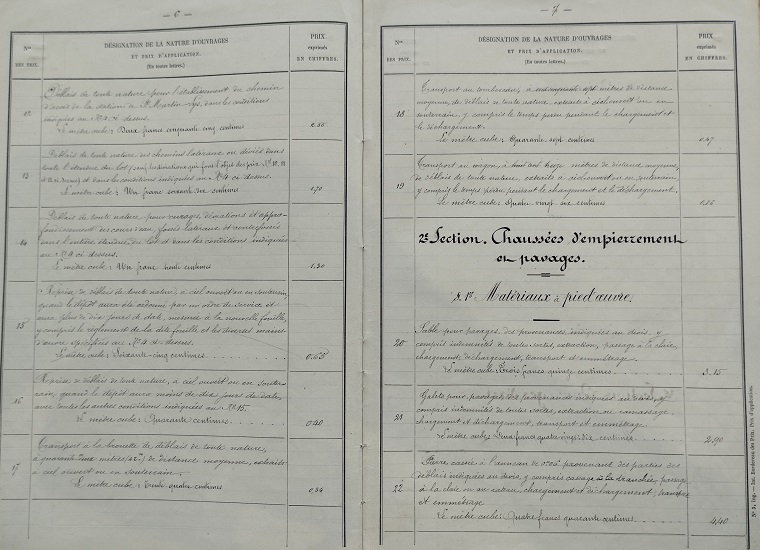 — 6 —
Nos
DES PRIX.
DÉSIGNATION DE LA NATURE D'OUVRAGES
ET PRIX D'APPLICATION.
(En toutes lettres.)
PRIX
exprimés
EN CHIFFRES.
12
Déblais de toute nature pour l'établissement du chemin
d'accès de la station de St Martin-, dans les conditions
indiquées au No 4 ci-dessus.
Le mètre cube : Deux francs cinquante cinq centimes
2.55
13
Déblais de toute nature des chemins latéraux ou déviés dans
toute l'étendue du lot
et dans les conditions indiquées au No 4 ci-dessus.
Le mètre cube : Un franc
14
Déblais de toute nature pour curages, déviations et appro-
fondissement des cours d'eau, fossés latéraux et
dans l'entière étendue du lot et dans les conditions indiquées
au No 4 ci-dessus.
Le mètre cube : Un franc trente centimes
1.30
15
Reprise de déblais de toute nature, à ciel ouvert ou en souterrain,
quand le dépôt aura été ordonné par un ordre de service et
aura plus de dix jours de date, mesurés à la nouvelle fouille,
y compris le règlement de la dite fouille et les diverses mains
d'œuvre spécifiées au No 4 ci-dessus.
Le mètre cube : Soixante-cinq centimes
0.65
16
Reprise de déblais de toute nature, à ciel ouvert ou en souter-
rain, quand le dépôt aura moins de dix jours de date,
avec toutes les autres conditions indiquées au No 15.
Le mètre cube : Quarante centimes
0.40
17
Transport à la brouette de déblais de toute nature,
à quarante deux mètres (42m) de distance moyenne, extraits
à ciel ouvert ou en souterrain.
Le mètre cube : Trente quatre centimes
0,34
— 7 —
Nos
DES PRIX.
DÉSIGNATION DE LA NATURE D'OUVRAGES
ET PRIX D'APPLICATION.
(En toutes lettres.)
PRIX
exprimés
EN CHIFFRES.
18
Transport au tombereau, à sept mètres de distance
moyenne, de déblais de toute nature extraits à ciel ouvert ou en
souterrain, y compris le temps perdu pendant le chargement et
le déchargement.
Le mètre cube : Quarante sept centimes
0.47
19
Transport au wagon, à mètres de distance moyenne,
de déblais de toute nature, extraits à ciel ouvert ou en souterrain,
y compris le temps perdu pendant le chargement et le déchargement.
Le mètre cube : Quatre vingt six centimes
0,86
2e Section. Chaussées d'empierrement
et pavages.
§. 1er Matériaux à pied d'œuvre.
20
Sable pour pavages, des provenances indiquées au devis, y
compris indemnités de toutes sortes, extraction, passage à la claie,
chargement, déchargement, transport et emmétrage.
Le mètre cube : Trois francs quinze centimes
3.15
21
Galets pour pavages des provenances indiquées au devis, y
compris indemnités de toutes sortes, extraction ou ramassage,
chargement et déchargement, transport et emmétrage.
Le mètre cube : Deux francs quatre vingt dix centimes
2,90
22
Pierre cassée à l'anneau de 0m06 provenant des parties des
déblais indiquées au devis, y compris cassage à la tranchée, passage
à la claie ou au rateau, chargement et déchargement, transport
et emmétrage
Le mètre cube : Quatre francs quarante centimes
4.40
No 1, — Inf. Bordereau des Prix. Prix d'application.